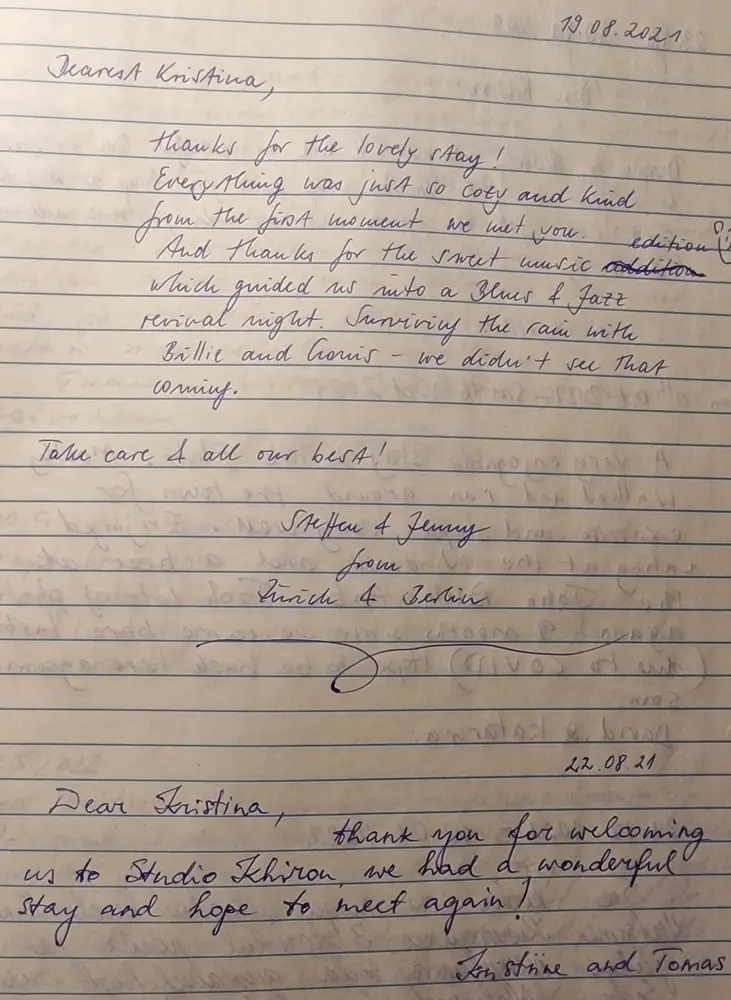 19.08.2021
Dearest Kristina,
thanks for the lovely stay!
Everything was just so cozy and kind
from the first moment we met you.
edition
And thanks for the sweet music addition
which guided us into a Blues & Jazz
revival night. Surviving the rain with
Billie and - we didn't see that
coming.
Take care & all our best!
Steffen & Jenny
from
Zürich & Berlin
22.08.21
Dear Kristina,
thank you for welcoming
us to Studio we had a wonderful
stay and hope to meet again!
Kristiine and Tomas